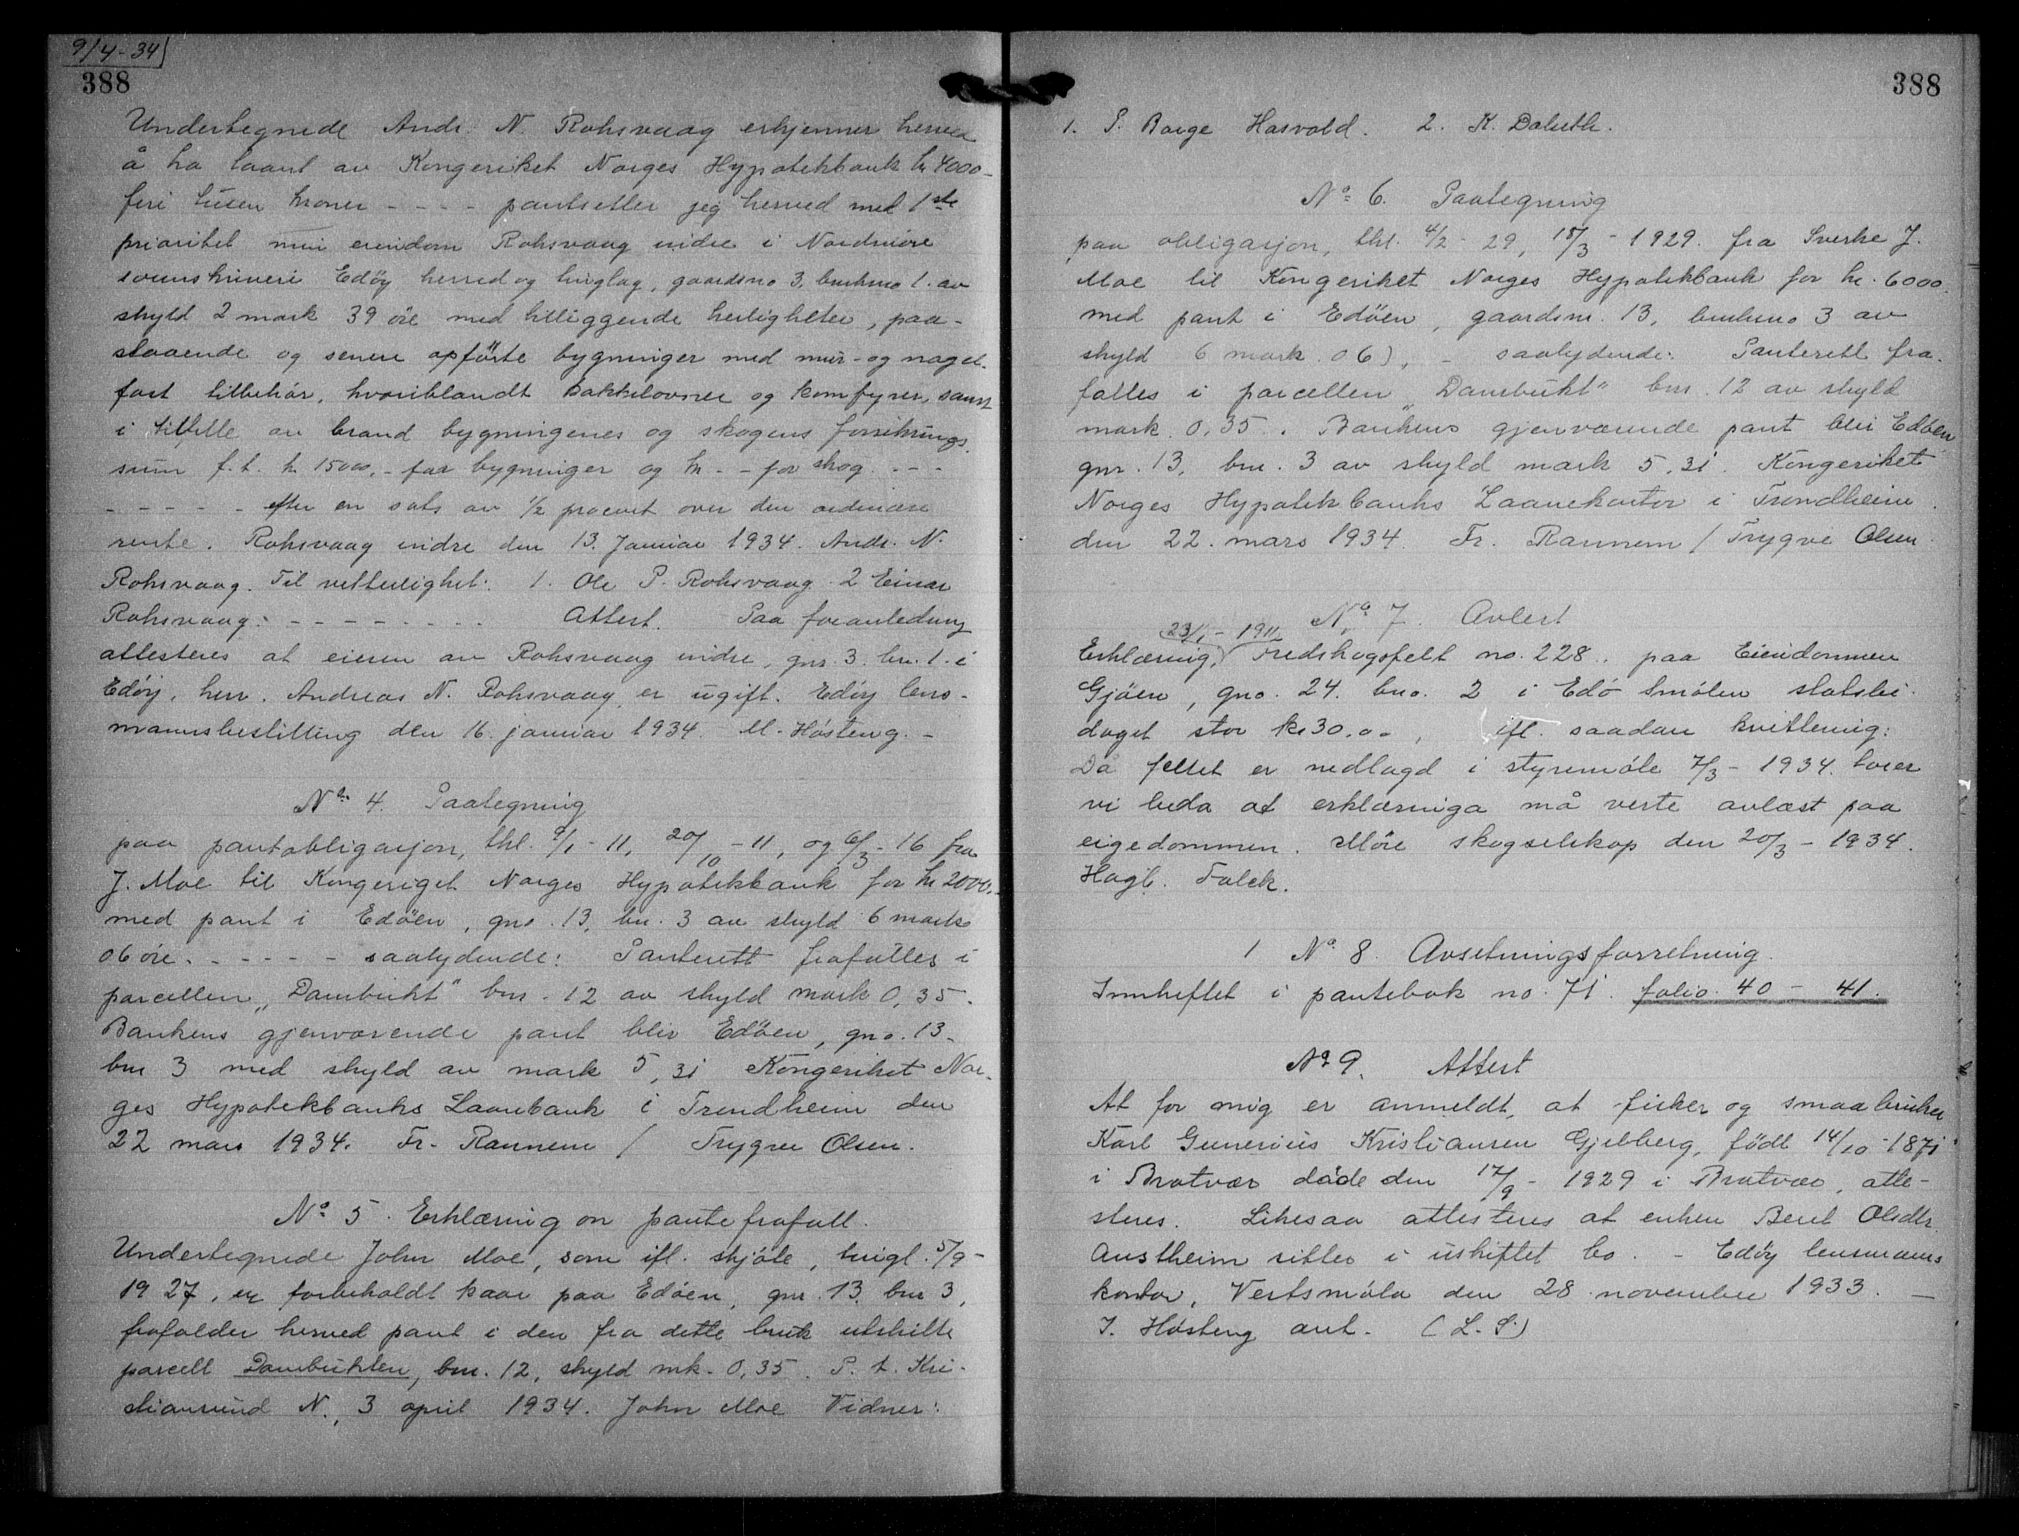 9/4-34
388
Undertegnede Andr. N. Rohsvaag erkjenner herved
å ha laant av Kongeriket Norges Hypotekbank kr 4000-
firi tusen kroner - - - - pantsetter jeg herved med 1ste
prioritet min eiendom Rohsvaag indre i Nordmöre
sorenskriveri Edöy herred og tinglag, gaardsno 3, bruksno 1. av
skyld 2 mark 39 öre med tilliggende herligheter, paa-
staaende og senere opførte bygninger med mur- og nagel-
fast tilbehör, hvoriblandt Bakkelovner og komfyrer, samt
i tilfelle av brand bygningenes og skogens forsikrings
sum f.t. kr 15000,- for bygninger og kr - - for skog - - -
- - - - - efter en sats av 1/2 procent over den ordinære
rente. Rohsvaag indre den 13. Januar 1934. Andr. N.
Rohsvaag. Til vitterlighet: 1. Ole P. Rohsvaag. 2 Einar
Rohsvaag: - - - - - - - - Attest. Paa foranledning
attesteres at eieren av Rohsvaag indre, gnr. 3. bn. 1. i
Edöy, herr. Andreas N. Rohsvaag er ugift. Edöy lens-
mannsbestilling den 16. januar 1934. M. Hösteng. -
No 4. Paategning
paa pantobligasjon, thl. 9/1-11, 20/10-11, og 6/3-16 fra
J. Moe til Kongeriget Norges Hypotekbank for kr 2000.-
med pant i Edöen, gno. 13, bn. 3 av skyld 6 mark
06 öre. - - - - - saalydende: Panterett frafalles i
parcellen „Dambukt" bnr. 12 av skyld mark 0,35.
Bankens gjenværende pant blir Edöen, gno. 13.
bnr 3 med skyld av mark 5,31 Kongeriket Nor-
ges Hypotekbanks Laanebank i Trondheim den
22 mars 1934. Fr. Rannem / Trygve Olsen.
No 5. Erklæring on pantefrafall.
Undertegnede John Moe, som ifl. skjöte, tingl. 5/9-
1927, er forbeholdt kaar paa Edöen, gnr. 13, bnr 3,
frafalder herved pant i den fra dette bruk utskilte
parcell Dambukten, bnr. 12, skyld mk. 0,35. P. t. Kri-
stiansund N., 3 april 1934. John Moe Vidner:
388
1. P. Borge Hasvold. 2. K. Dalseth.
No 6. Paategning
paa obligasjon, thl. 4/2-29, 18/3-1929. fra Sverke J.
Moe til Kongeriket Norges Hypotekbank for kr. 6000.
med pant i Edöen, gaardsnr. 13, bruksno 3 av
skyld 6 mark. 06), - saalydende: Panterett fra-
falles i parcellen „Dambukt" bnr. 12 av skyld
mark. 0,35. Bankens gjenværende pant blir Edöen
gnr. 13, bnr. 3 av skyld mark 5,31. Kongeriket
Norges Hypotekbanks Laanekontor i Trondheim.
den 22. mars 1934. Fr. Rannem / Trygve Olsen.
No 7. Avlest
23/1-1911
Erklæring, Fredskogsfelt no. 228. paa Eiendommen
Gjöen, gno. 24. bno. 2 i Edö Smölen statsbi-
daget stor kr 30.00, ifl. saadan kvittering:
Då feltet er nedlagd i styremöte 7/3-1934. torer
vi beda at erklæringa må verte avlæst paa
eigedommen. Möre skogselskap den 20/3-1934.
Hagb. Falck.
1 No 8. Avsetningsforretning.
Innheftet i pantebok no. 71. folio. 40 - 41.
No 9. Attest
At for mig er anmeldt, at fisker og smaabruker
Karl Gunerius Kristiansen Gjelberg, födt 14/10-1871
i Bratvær döde den 17/9-1929 i Bratvær, atte-
steres. Likesaa attesteres at enken Beret Olsdtr
Austheim sitter i uskiftet bo. - Edöy lensmanns
kontor, Vestsmöla den 28 november 1933. -
I. Hösteng ant. (L. S.)